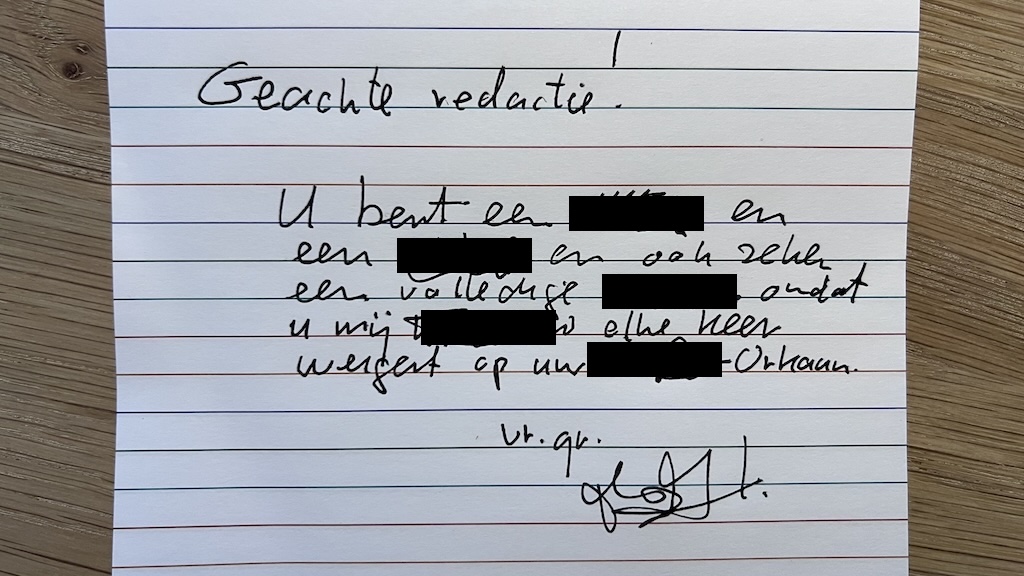 Geachte redactie!
U bent een en
een en ook zeker
een volledige omdat
u mij elke keer
weigert op uw -Orkaan.
vr. gr.